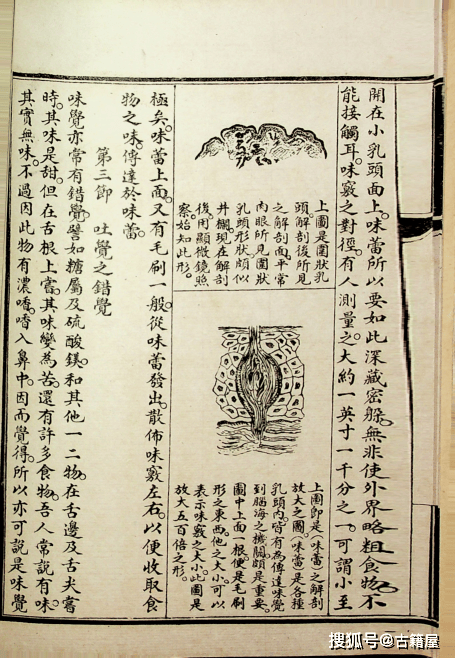 開在小乳頭面上。味蕾所以要如此深藏密躲。無非使外界略粗食物。不
能接觸耳。味竅之對徑。有人測量之。大約一英寸一千分之一。可謂小至
上圖是圍狀乳
頭。解剖後所見
之解剖面。平常
肉眼所見圍狀
乳頭形狀。頗似
井欄。現在解剖
後用顯微鏡照
察。始知此形。
上圖即是(味蕾)之解剖
放大之圖。(味蕾)是各種
乳頭內。皆有為傳達味覺
到腦海之機關。頗是重要。
圖中上面一根。便是毛刷
形之東西。他之大小。可以
表示味竅之大小。此圖是
放大五百倍之形。
極矣。味蕾上面。又有毛刷一般。從味蕾發出。散佈味竅左右。以便收取食
物之味。傳達於味蕾。
第三節 吐覺之錯覺
味覺亦常有錯覺。譬如糖屬及硫酸鎂。和其他一二物。在舌邊及舌尖嘗
時。其味是甜。但在舌根上嘗。其味變為苦。還有許多食物。吾人常說有味。
其實無味。不過因此物有濃香。香入鼻中。因而覺得。所以亦可說是味覺
搜狐号@古籍屋